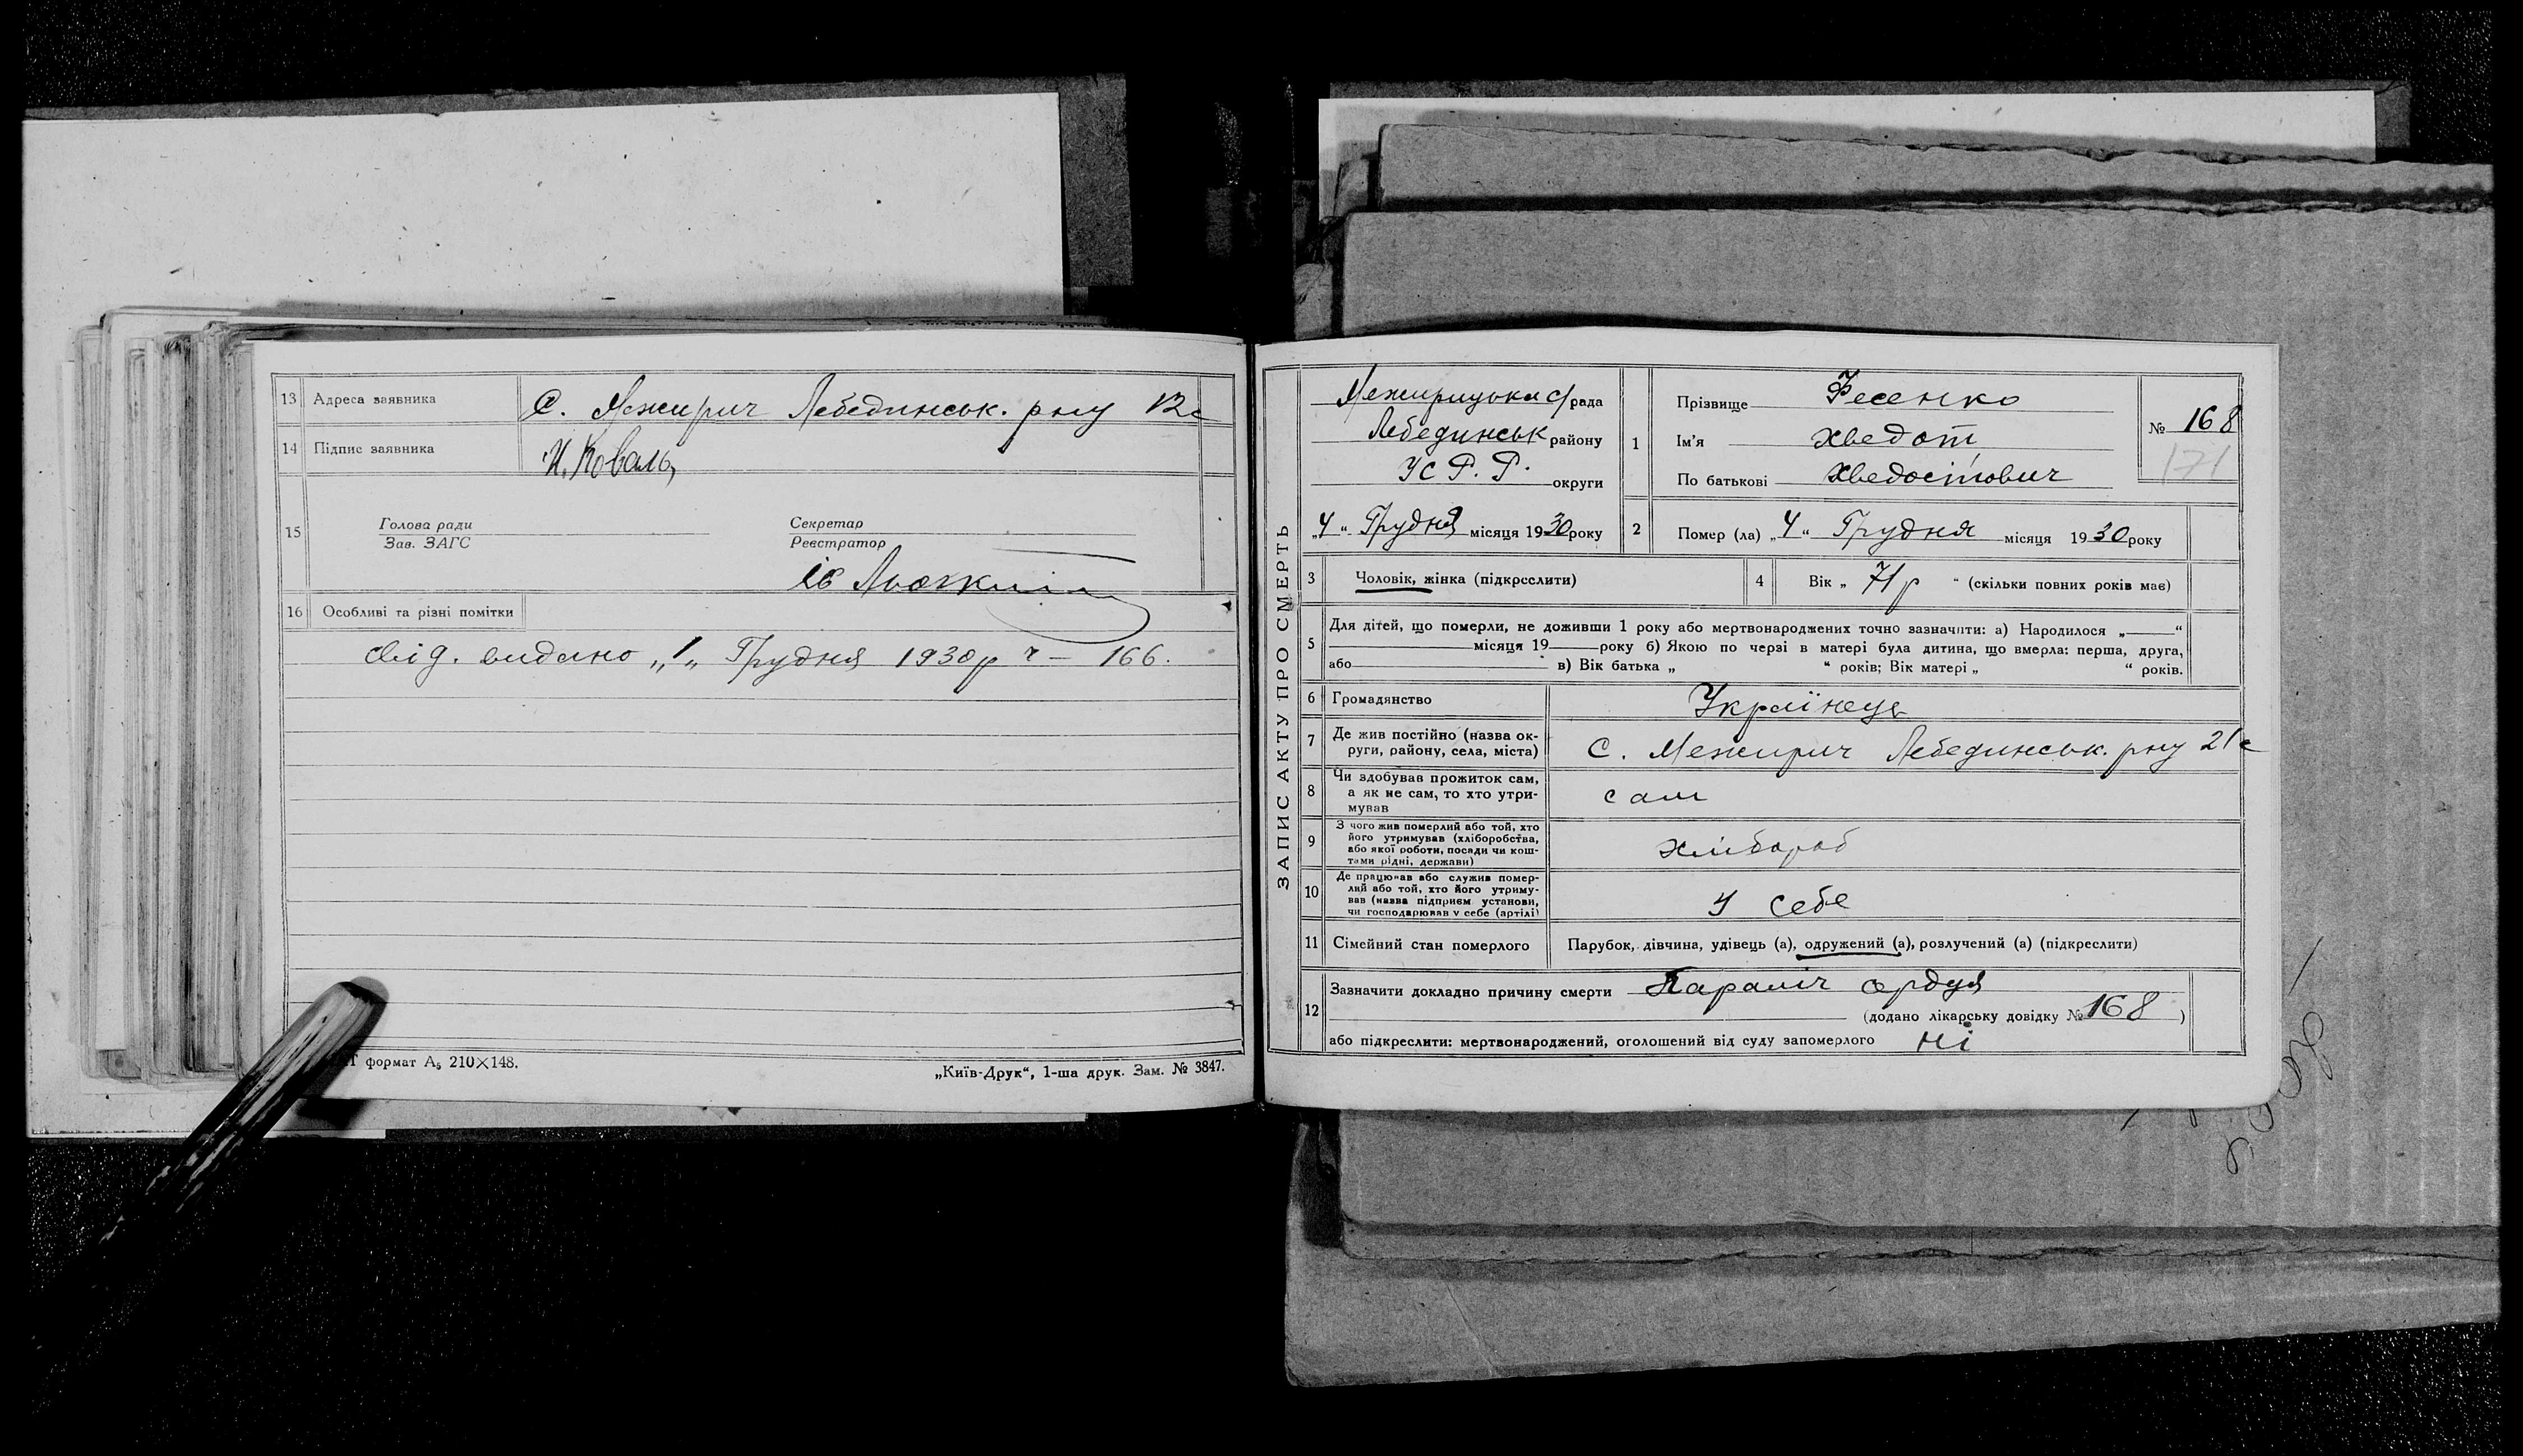 13 Адреса заявника С. Межирич Лебединськ. рну 12с
14 Підпис заявника И. Коваль
15 Голова ради Секретар
Зав. ЗАГС Реєстратор
16 Особливі та різні помітки
свід. видано „1„ Грудня 1930р ч – 166.
формат А5 210×148.
„Київ-Друк“, 1-ша друк. Зам. № 3847.
ЗАПИС АКТУ ПРО СМЕРТЬ
Межирицька с/рада
Лебединськ району
УСРР. округи
„4“ Грудня місяця 1930 року
1 Прізвище Фесенко
Ім'я Хведот
По батькові Хведостович
№ 168
171
2 Помер (ла) „4“ Грудня місяця 1930 року
3 Чоловік, жінка (підкреслити)
4 Вік „ 71р “ (скільки повних років має)
5 Для дітей, що померли, не доживши 1 року або мертвонароджених точно зазначити: а) Народилося „ “
місяця 19 року б) Якою по черзі в матері була дитина, що вмерла: перша, друга,
або в) Вік батька „ “ років; Вік матері „ “ років.
6 Громадянство Українець
7 Де жив постійно (назва ок-
руги, району, села, міста) С. Межирич Лебединськ. рну 21с
8 Чи здобував прожиток сам,
а як не сам, то хто утри-
мував сам
9 З чого жив померлий або той, хто
його утримував (хліборобства,
або якої роботи, посади чи кош-
тами рідні, держави) хлібороб
10 Де працював або служив помер-
лий або той, хто його утриму-
вав (назва підприєм установи,
чи господарював у себе (артілі) У себе
11 Сімейний стан померлого Парубок, дівчина, удівець (а), одружений (а), розлучений (а) (підкреслити)
12 Зазначити докладно причину смерти Параліч сердця
(додано лікарську довідку № 168 )
або підкреслити: мертвонароджений, оголошений від суду запомерлого ні